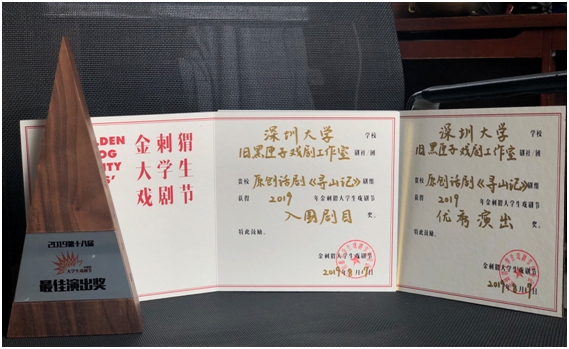 2019第十八届
大学生戏剧节
最佳演出奖
金刺猬
大学生
戏剧节
深圳大学 学校
旧黑匣子戏剧工作室 剧社/团
贵校 原创话剧《寻山记》剧组
获得 2019 年金刺猬大学生戏剧节
入围剧目 奖。
特此鼓励。
金刺猬大学生戏剧节
2019年8月19日
深圳大学 学校
旧黑匣子戏剧工作室 剧社/团
贵校 原创话剧《寻山记》剧组
获得 2019 年金刺猬大学生戏剧节
优秀演出 奖。
特此鼓励。
金刺猬大学生戏剧节
2019年8月19日